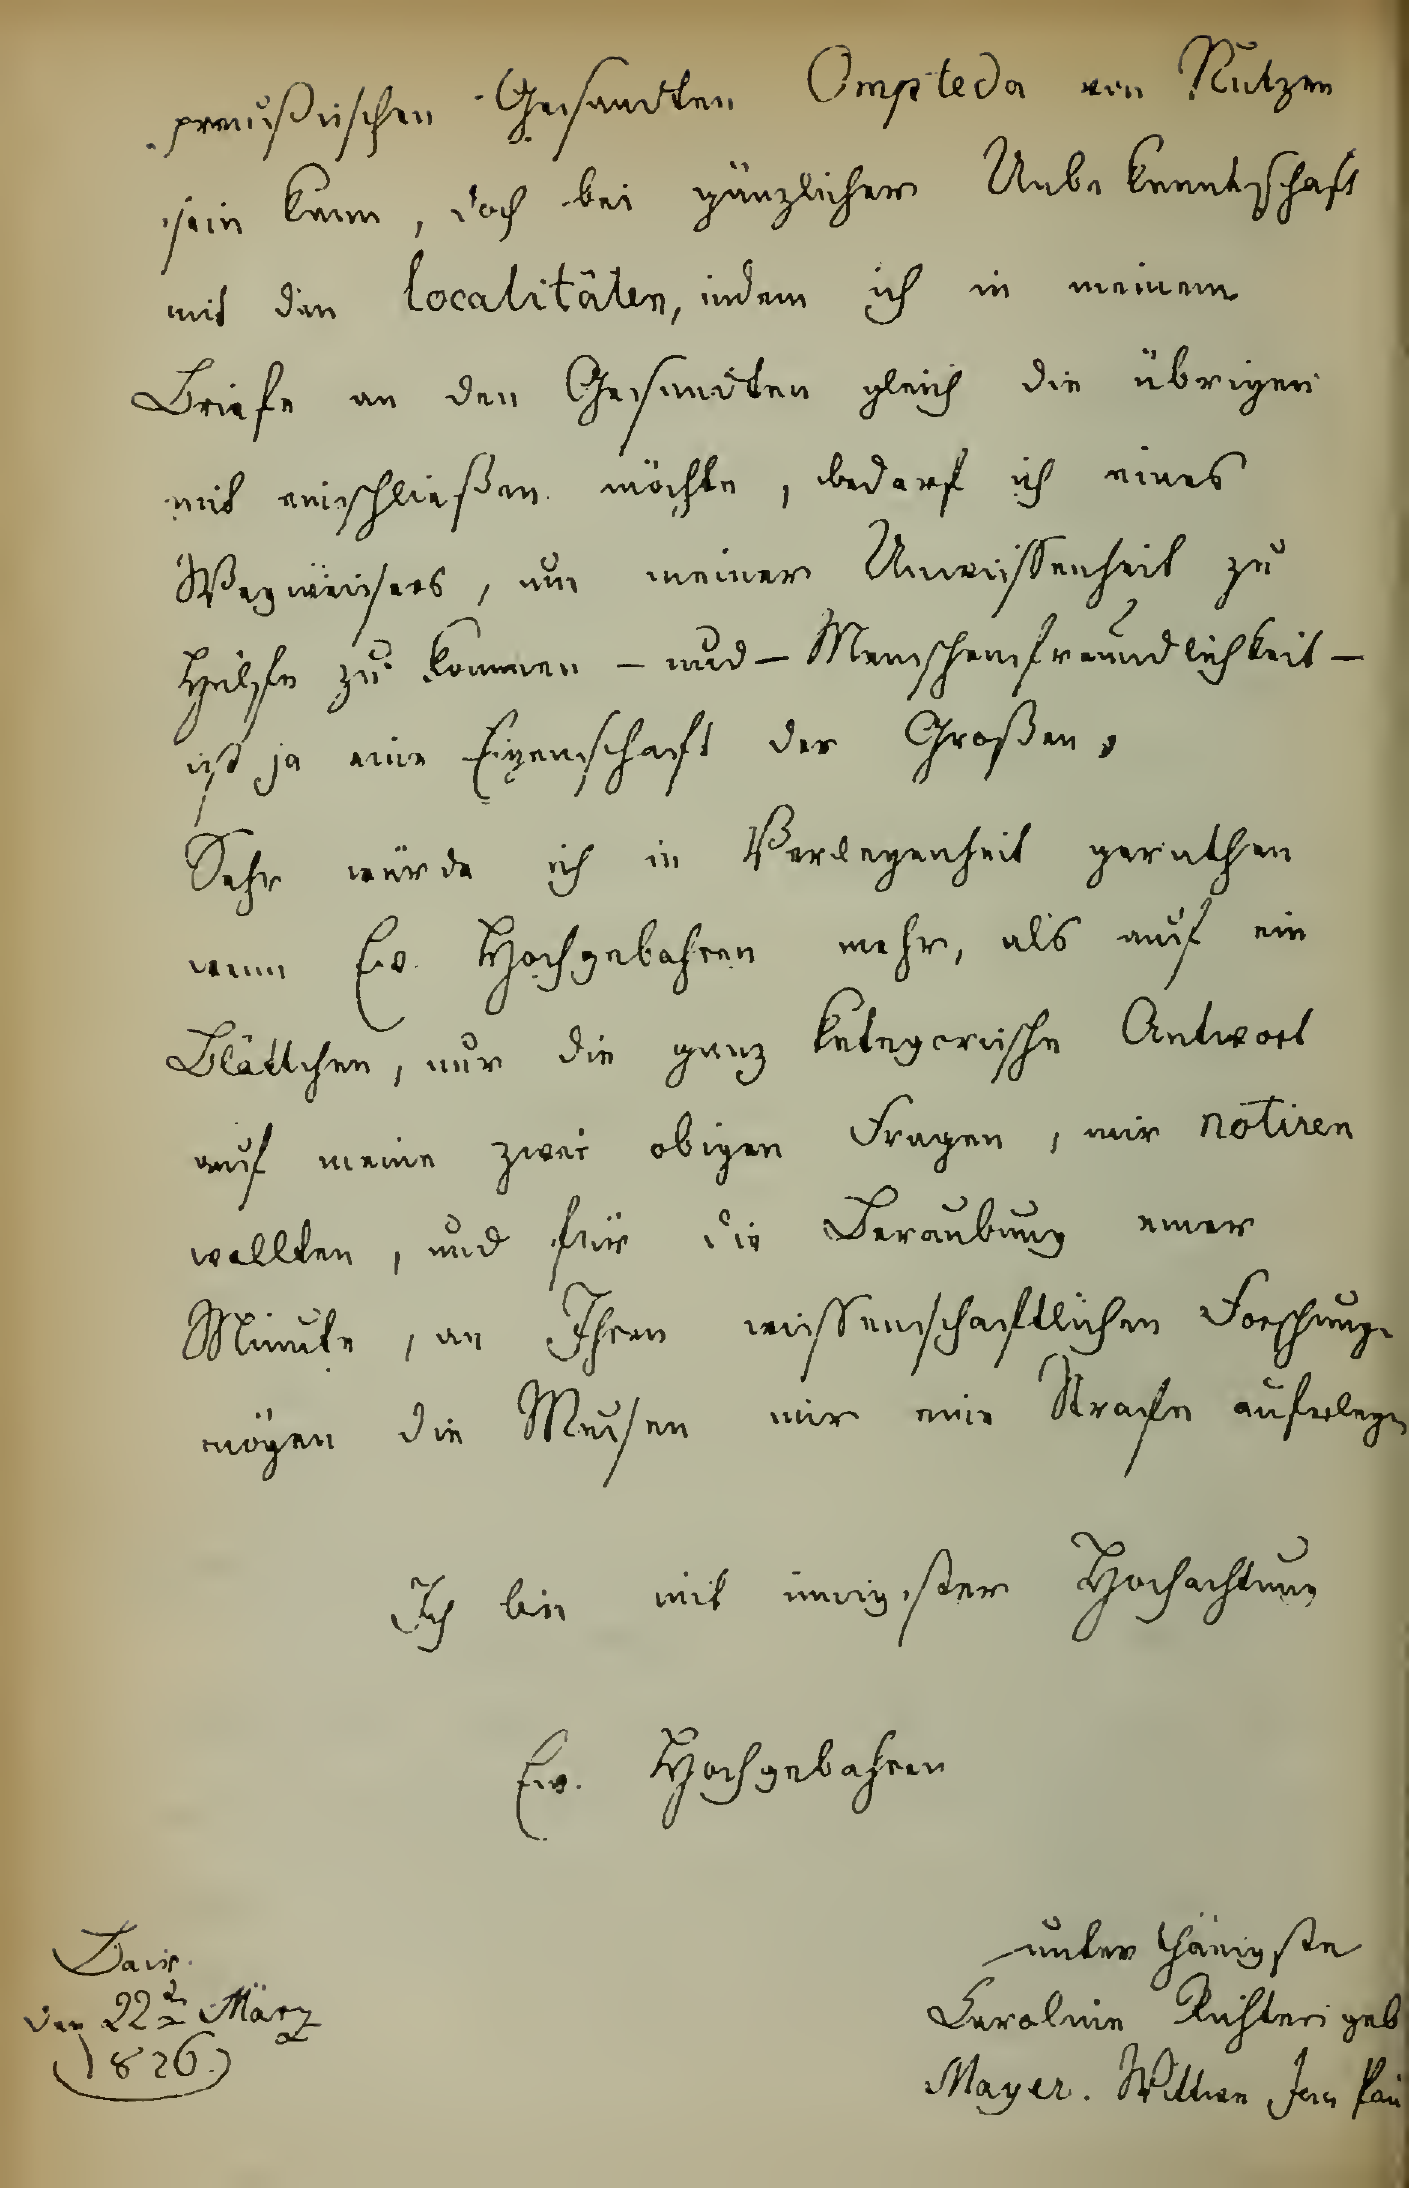 preußischen Gesandten Ompteda von Nutzen
sein kann, doch bei gänzlicher Unbekanntschaft
mit den Localitäten, indem ich in meinem
Briefe an den Gesandten gleich die übrigen
mit einschließen möchte, bedarf ich eines
Wegweisers, um meiner Unwissenheit zu
Hülfe zu kommen – und – Menschenfreundlichkeit –
ist ja eine Eigenschaft der Großen,
Sehr würde ich in Verlegenheit gerathen
wenn Ew. Hochgebohren mehr, als auf ein
Blättchen, nur die ganz kategorische Antwort
auf meine zwei obigen Fragen, mir notiren
wollten, und für die Beraubung einer
Minute, an Ihren wissenschaftlichen Forschunge
mögen die Musen mir eine Strafe auferlegen
Ich bin mit innigster Hochachtung
Ew. Hochgebohren
Bair.
den 22ⁿ März
1826.
unterthänigste
Caroline Richter geb
Mayer. Wittwe Jean Pau